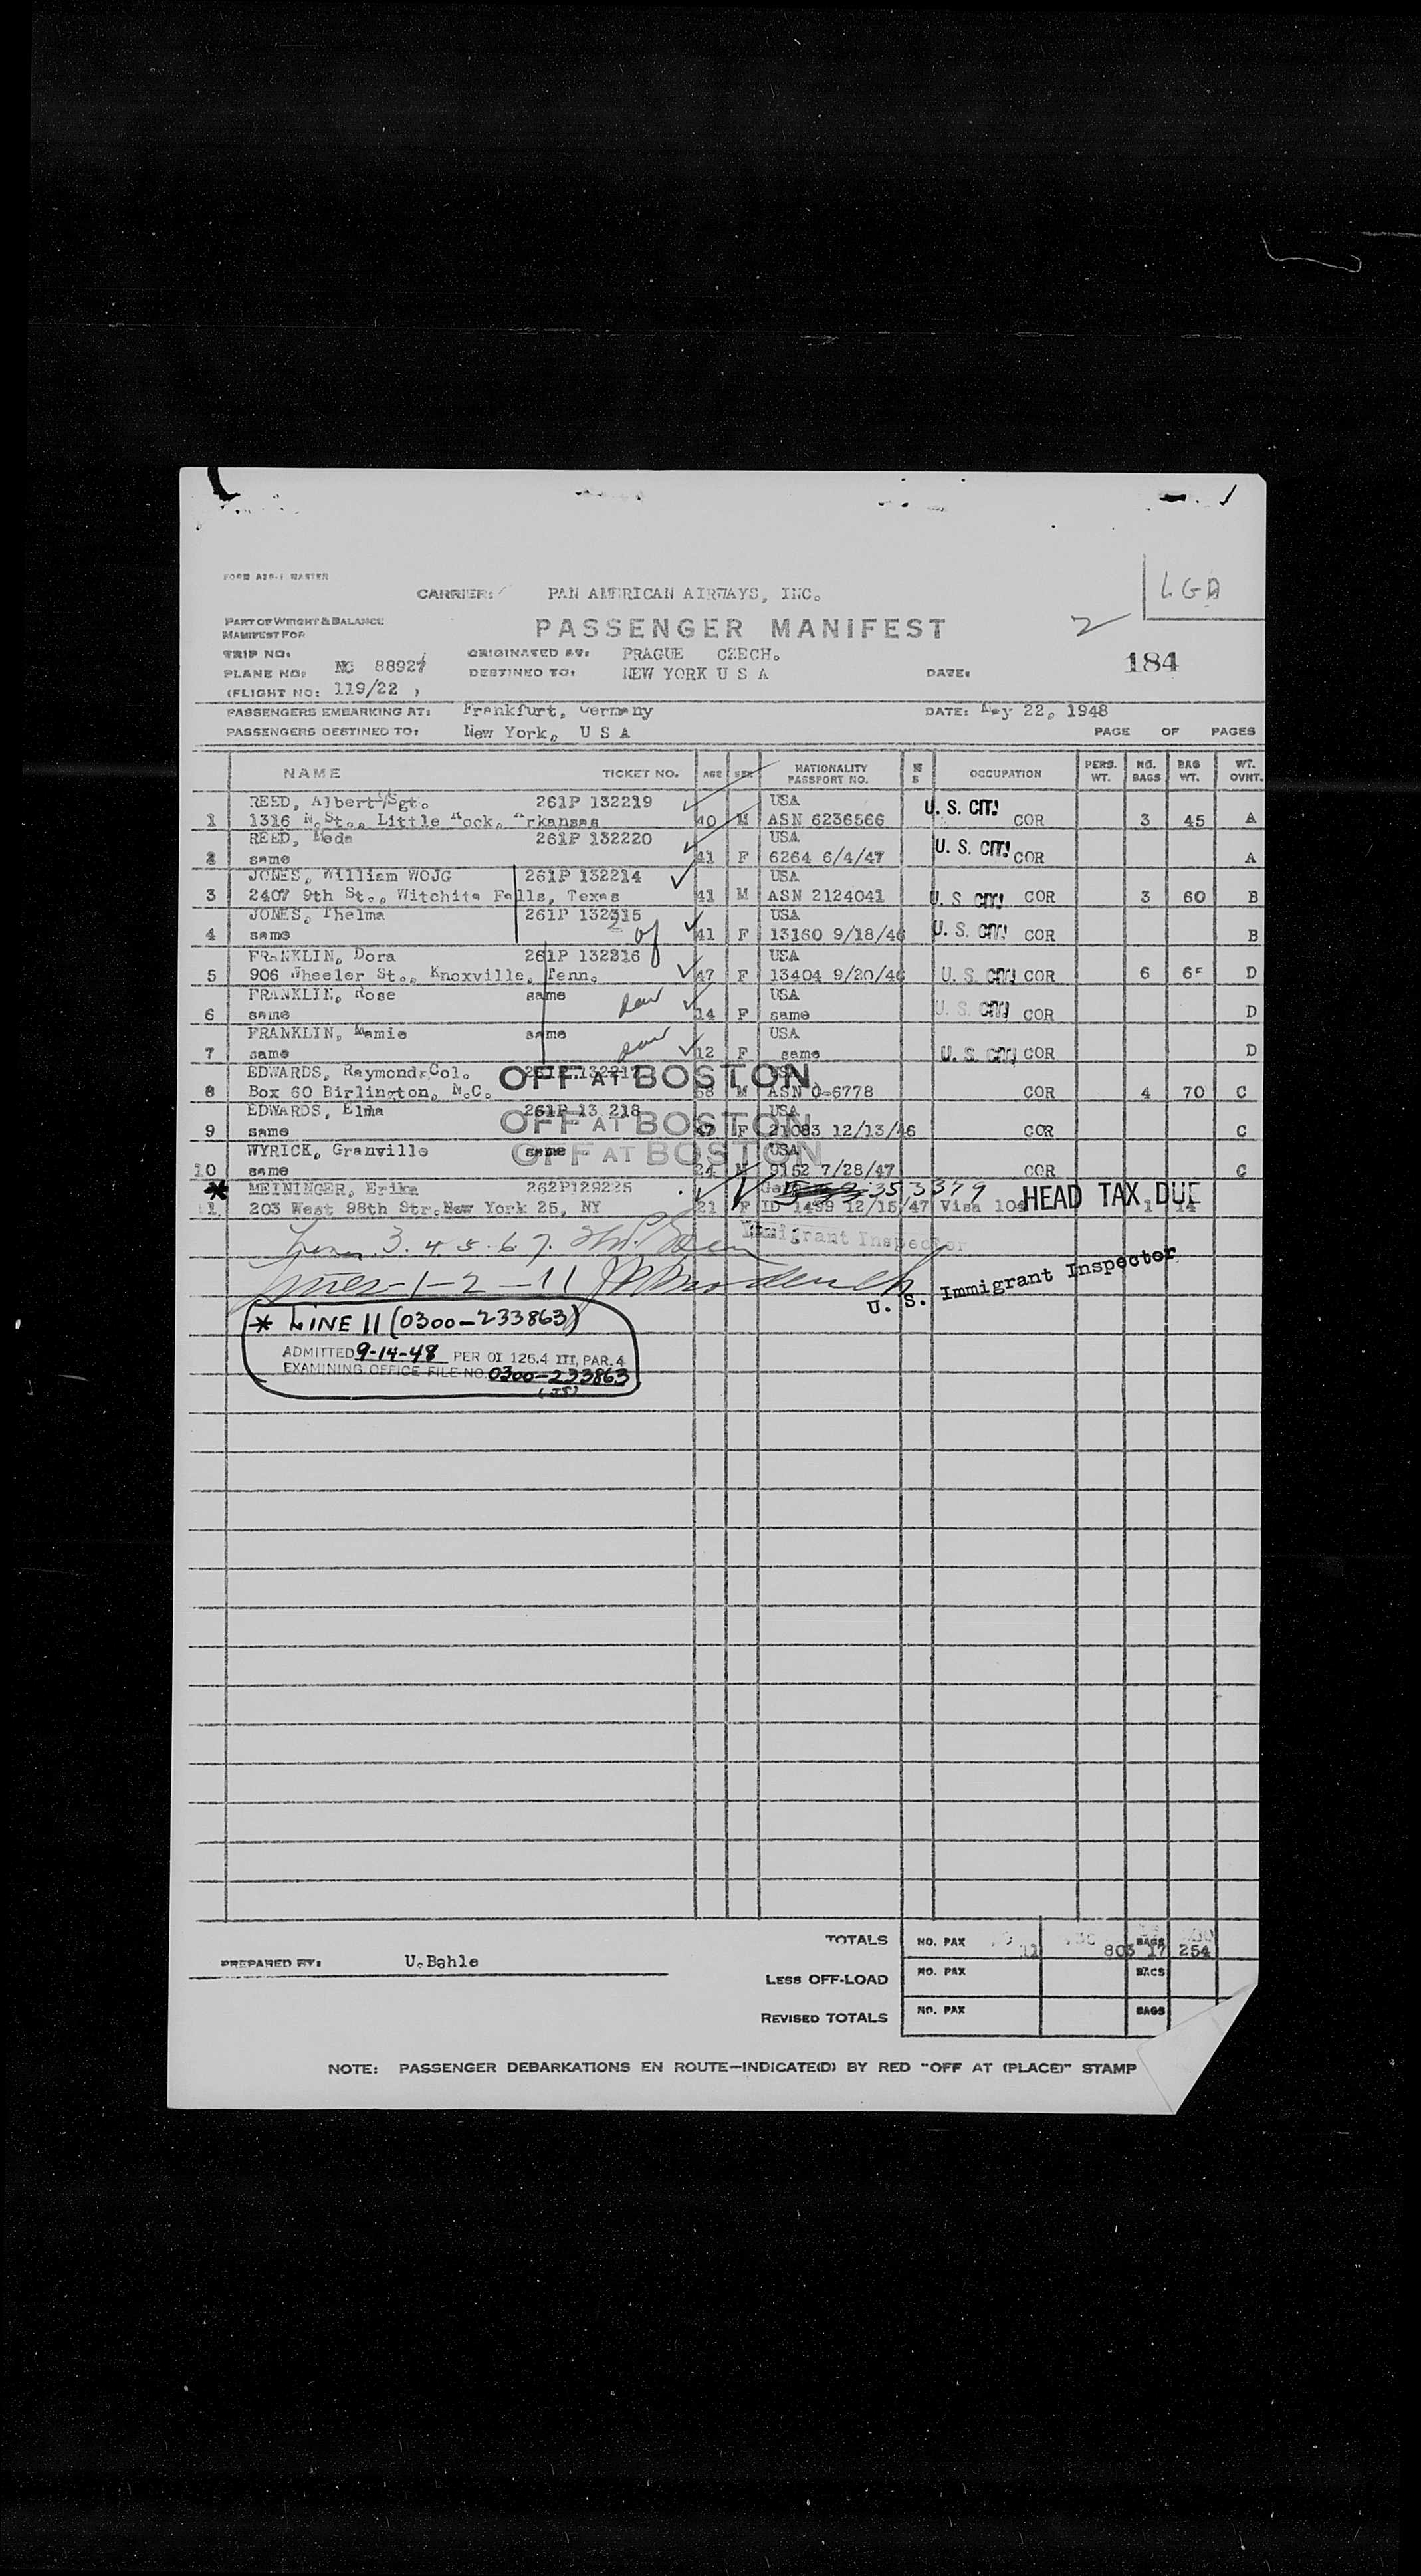 FORM A26-1 MASTER
LGD
CARRIER: PAN AMERICAN AIRWAYS, INC.
PART OF WEIGHT & BALANCE
MANIFEST FOR
PASSENGER MANIFEST
2
TRIP NO:
ORIGINATED AT: PRAGUE CZECH.
184
PLANE NO: NC 88927
DESTINED TO: NEW YORK U S A
DATE:
(FLIGHT NO: 119/22 )
PASSENGERS EMBARKING AT: Frankfurt, Germany DATE: May 22, 1948
PASSENGERS DESTINED TO: New York, U S A PAGE OF PAGES
NAME TICKET NO. AGE SEX NATIONALITY PASSPORT NO. OCCUPATION PERS. WT. NO. BAGS BAG WT. WT. OVNT.
REED, Albert Sgt. 261P 132219 USA U. S. CIT!
1 1316 N.St., Little Rock, Arkansas 40 M ASN 6236566 COR 3 45 A
REED, Meda 261P 132220 USA U. S. CIT!
2 same 41 F 6264 6/4/47 COR A
JONES, William WOJG 261P 132214 USA
3 2407 9th St., Witchita Falls, Texas 41 M ASN 2124041 U. S CIT! COR 3 60 B
JONES, Thelma 261P 132215 USA
4 same 41 F 13160 9/18/46 U. S. CIT! COR B
FRANKLIN, Dora 261P 132216 USA
5 906 Wheeler St., Knoxville, Tenn. 47 F 13404 9/20/46 U. S. CIT! COR 6 65 D
FRANKLIN, Rose same USA
6 same 14 F same U. S. CIT! COR D
FRANKLIN, Mamie same USA
7 same 12 F same U. S. CIT! COR D
EDWARDS, Raymond, Col. 261P 132217 USA
OFF AT BOSTON
8 Box 60 Birlington, N.C. 58 M ASN O-6778 COR 4 70 C
EDWARDS, Elma 261P 13 218 USA
OFF AT BOSTON
9 same 47 F 21083 12/13/46 COR C
WYRICK, Granville same USA
OFF AT BOSTON
10 same 24 M 9152 7/28/47 COR C
* MEININGER, Erika 262P129225 353379 HEAD TAX DUE
11 203 West 98th Str.New York 25, NY 21 F ID 1499 12/15/47 Visa 104 1 14
3. 4. 5. 6. 7.
Immigrant Inspector
Lines-1-2-11
U. S. Immigrant Inspector
* LINE 11 (0300-233863)
ADMITTED 9-14-48 PER OI 126.4 III, PAR. 4
EXAMINING OFFICE FILE NO. 0300-233863
TOTALS NO. PAX 11 803 BAGS 17 254
PREPARED BY: U.Bahle
LESS OFF-LOAD NO. PAX BAGS
REVISED TOTALS NO. PAX BAGS
NOTE: PASSENGER DEBARKATIONS EN ROUTE—INDICATE(D) BY RED "OFF AT (PLACE)" STAMP